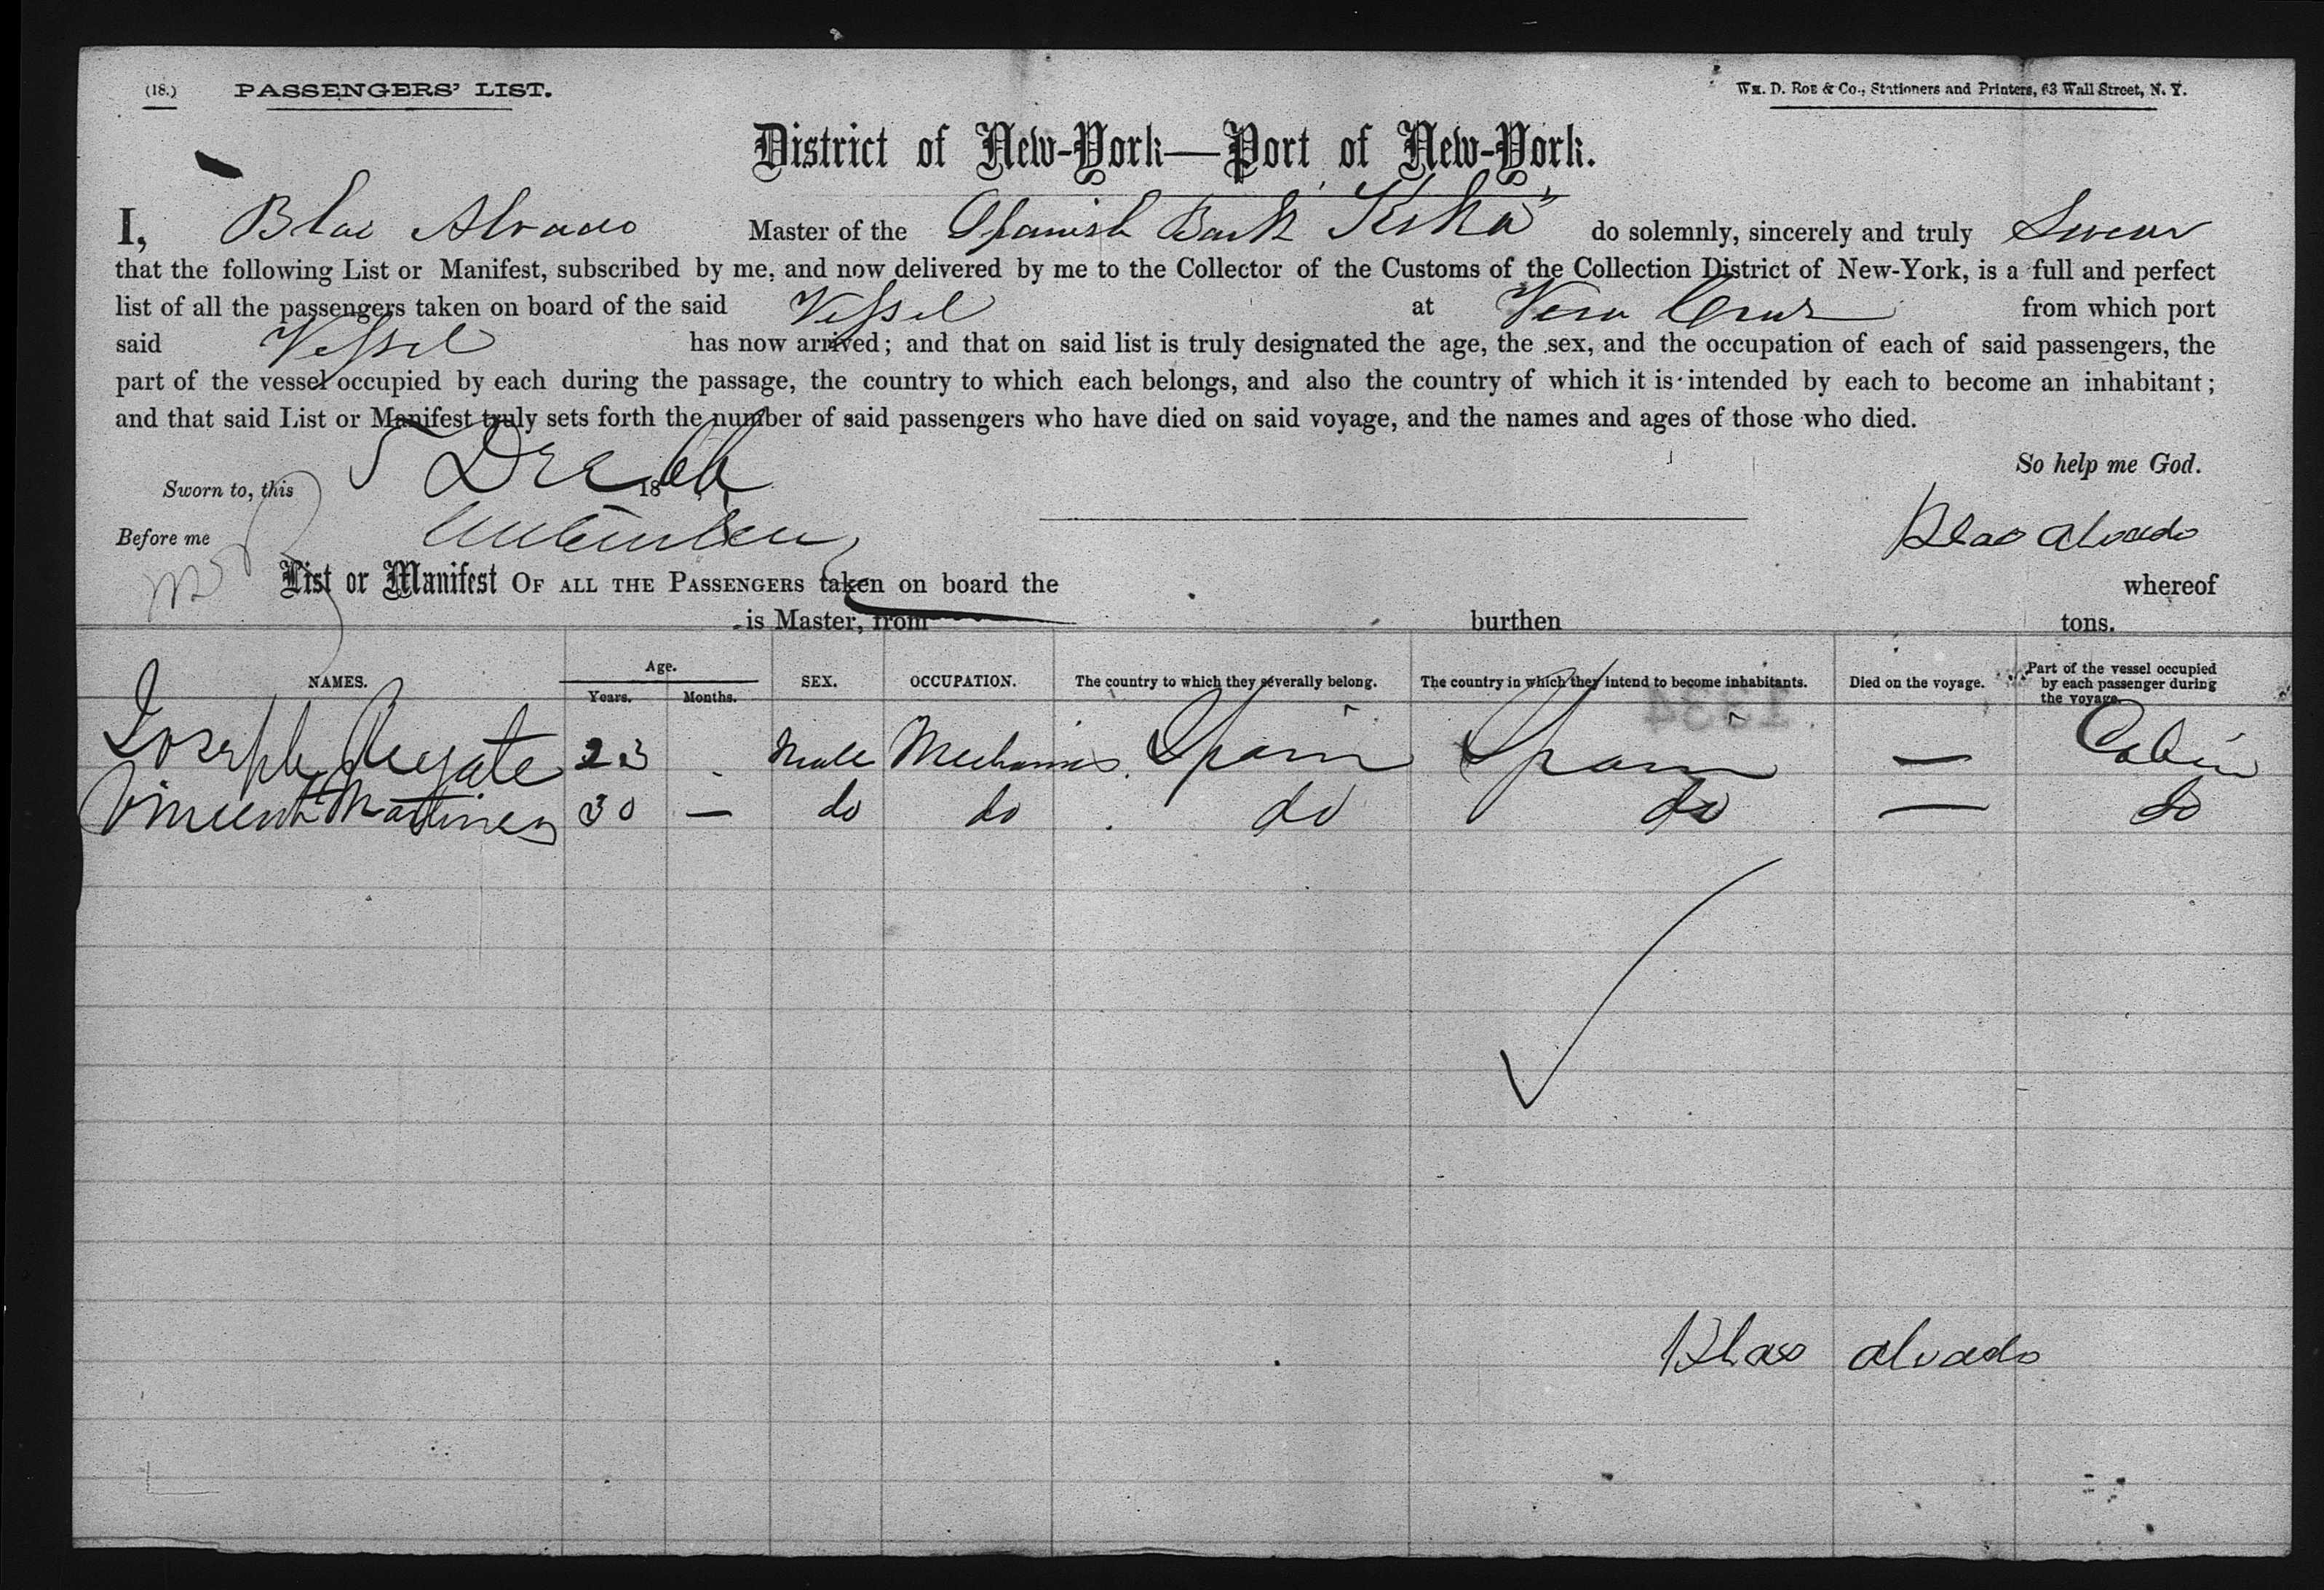 (18.) PASSENGERS' LIST. Wm. D. Roe & Co., Stationers and Printers, 63 Wall Street, N. Y.
District of New-York—Port of New-York.
I, Blas Alvado Master of the Spanish Bark do solemnly, sincerely and truly Swear
that the following List or Manifest, subscribed by me, and now delivered by me to the Collector of the Customs of the Collection District of New-York, is a full and perfect
list of all the passengers taken on board of the said Vessel at Vera Cruz from which port
said Vessel has now arrived; and that on said list is truly designated the age, the sex, and the occupation of each of said passengers, the
part of the vessel occupied by each during the passage, the country to which each belongs, and also the country of which it is intended by each to become an inhabitant;
and that said List or Manifest truly sets forth the number of said passengers who have died on said voyage, and the names and ages of those who died.
So help me God.
Sworn to, this 5 Dec 1866
Before me Blas Alvado
List or Manifest OF ALL THE PASSENGERS taken on board the whereof
is Master, from burthen tons.
NAMES. Age. Years. Months. SEX. OCCUPATION. The country to which they severally belong. The country in which they intend to become inhabitants. Died on the voyage. Part of the vessel occupied by each passenger during the voyage.
1334
Joseph 23 Male Mechanics Spain Spain — Cabin
Vincent Martinez 30 — do do do do — do
Blas Alvado